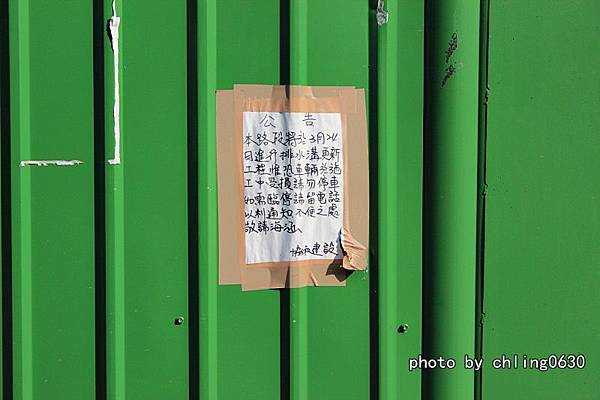 公告
本路段將於3月24
日進行排水溝更新
工程惟恐車輛於施
工中受損請勿停車
如需臨停請留電話
以利通知不便之處
敬請海涵
建設
photo by chling0630